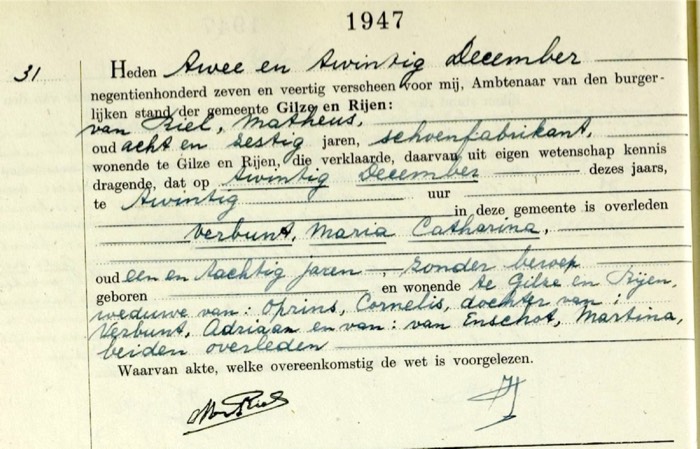 1947
31
Heden twee en twintig December
negentienhonderd zeven en veertig verscheen voor mij, Ambtenaar van den burger-
lijken stand der gemeente Gilze en Rijen:
van Riel, Matheus,
oud acht en zestig jaren, schoenfabrikant,
wonende te Gilze en Rijen, die verklaarde, daarvan uit eigen wetenschap kennis
dragende, dat op twintig December dezes jaars,
te twintig uur
in deze gemeente is overleden
Verbunt, Maria Catharina,
oud een en tachtig jaren, zonder beroep
geboren en wonende te Gilze en Rijen,
weduwe van: Oprins, Cornelis, dochter van:
Verbunt, Adriaan en van: van Enschot, Martina,
beiden overleden
Waarvan akte, welke overeenkomstig de wet is voorgelezen.